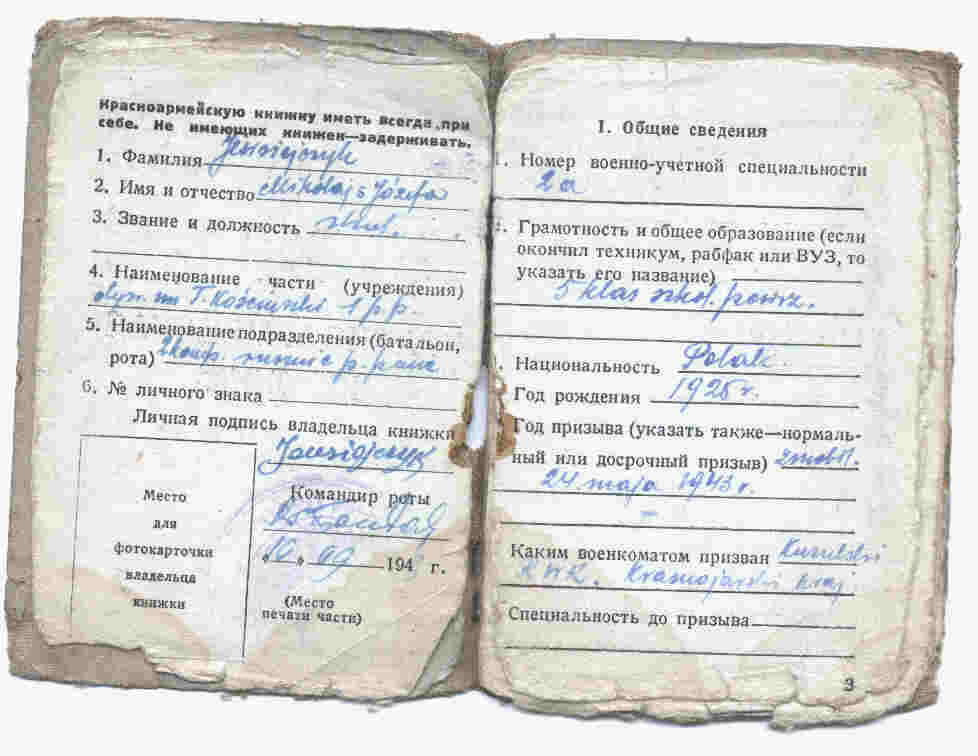 Красноармейскую книжку иметь всегда при
себе. Не имеющих книжек—задерживать.
1. Фамилия
2. Имя и отчество Mikołaj s Józefa
3. Звание и должность
4. Наименование части (учреждения)
dyw. im T. Kościuszki 1 p.p.
5. Наименование подразделения (батальон,
рота)
6. № личного знака
Личная подпись владельца книжки
Командир роты
„ 10 „ 09 194 г.
Место
для
фотокарточки
владельца
книжки
(Место
печати части)
I. Общие сведения
. Номер военно-учетной специальности
2a
. Грамотность и общее образование (если
окончил техникум, рабфак или ВУЗ, то
указать его название)
5 klas szkoł. powsz.
. Национальность Polak
Год рождения 1925 r.
Год призыва (указать также—нормаль-
ный или досрочный призыв) zmob.
24 maja 1943 r.
Каким военкоматом призван
Krasnojarski kraj
Специальность до призыва
3